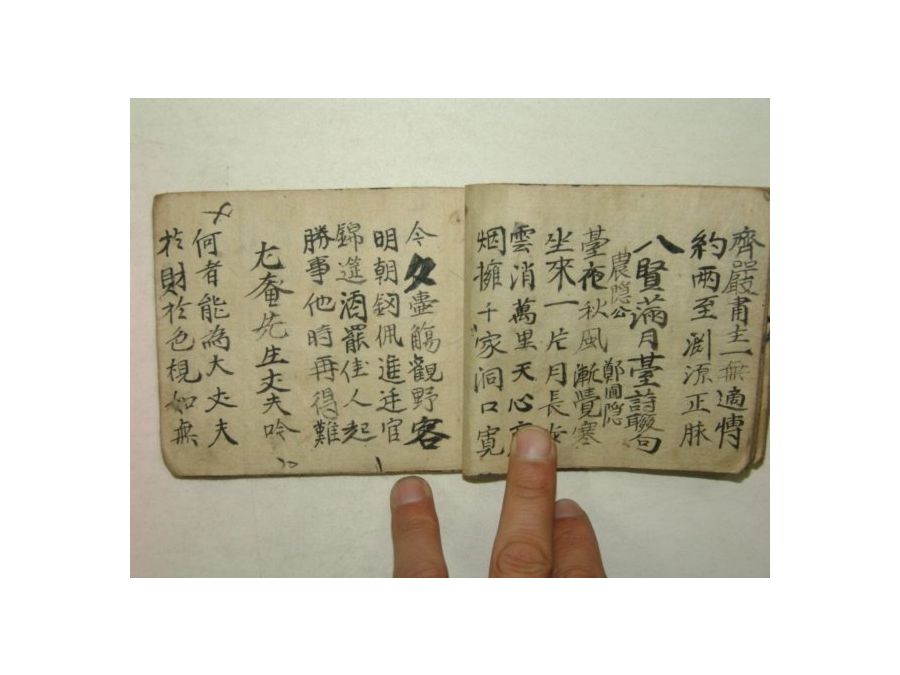 齊嚴肅主一無適傳
約兩至淵源正脉
八賢滿月臺詩聯句
農隱公 鄭圃隐
臺夜秋風漸覺寒
坐來一片月長
雲消萬里天心
烟擁千家洞口寛
今久盡觴觀野客
明朝釼佩進迁官
錦筵酒罷佳人起
勝事他時再得難
尤菴先生丈夫吟
何者能為大丈夫
於財於色視如無